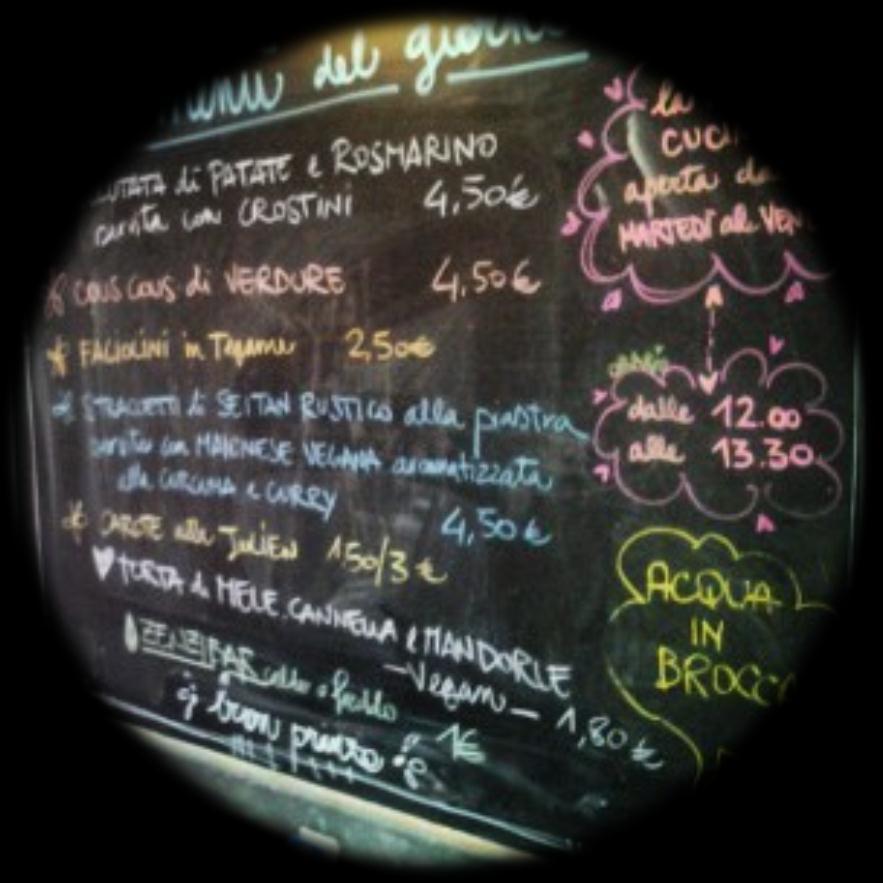 del
di PATATE e ROSMARINO
servita con CROSTINI 4,50€
COUS COUS di VERDURE 4,50€
FAGIOLINI in Tegame 2,50€
STRACCETTI di SEITAN RUSTICO alla piastra
con MAIONESE VEGANA aromatizzata
alla CURCUMA e CURRY
4,50€
CAROTE alla JULIEN 1,50/3€
TORTA di MELE, CANNELLA e MANDORLE
-Vegan- 1,80€
caldo o freddo
1€
buon pranzo
la
aperta
MARTEDÌ al
dalle 12.00
alle 13.30
ACQUA
IN